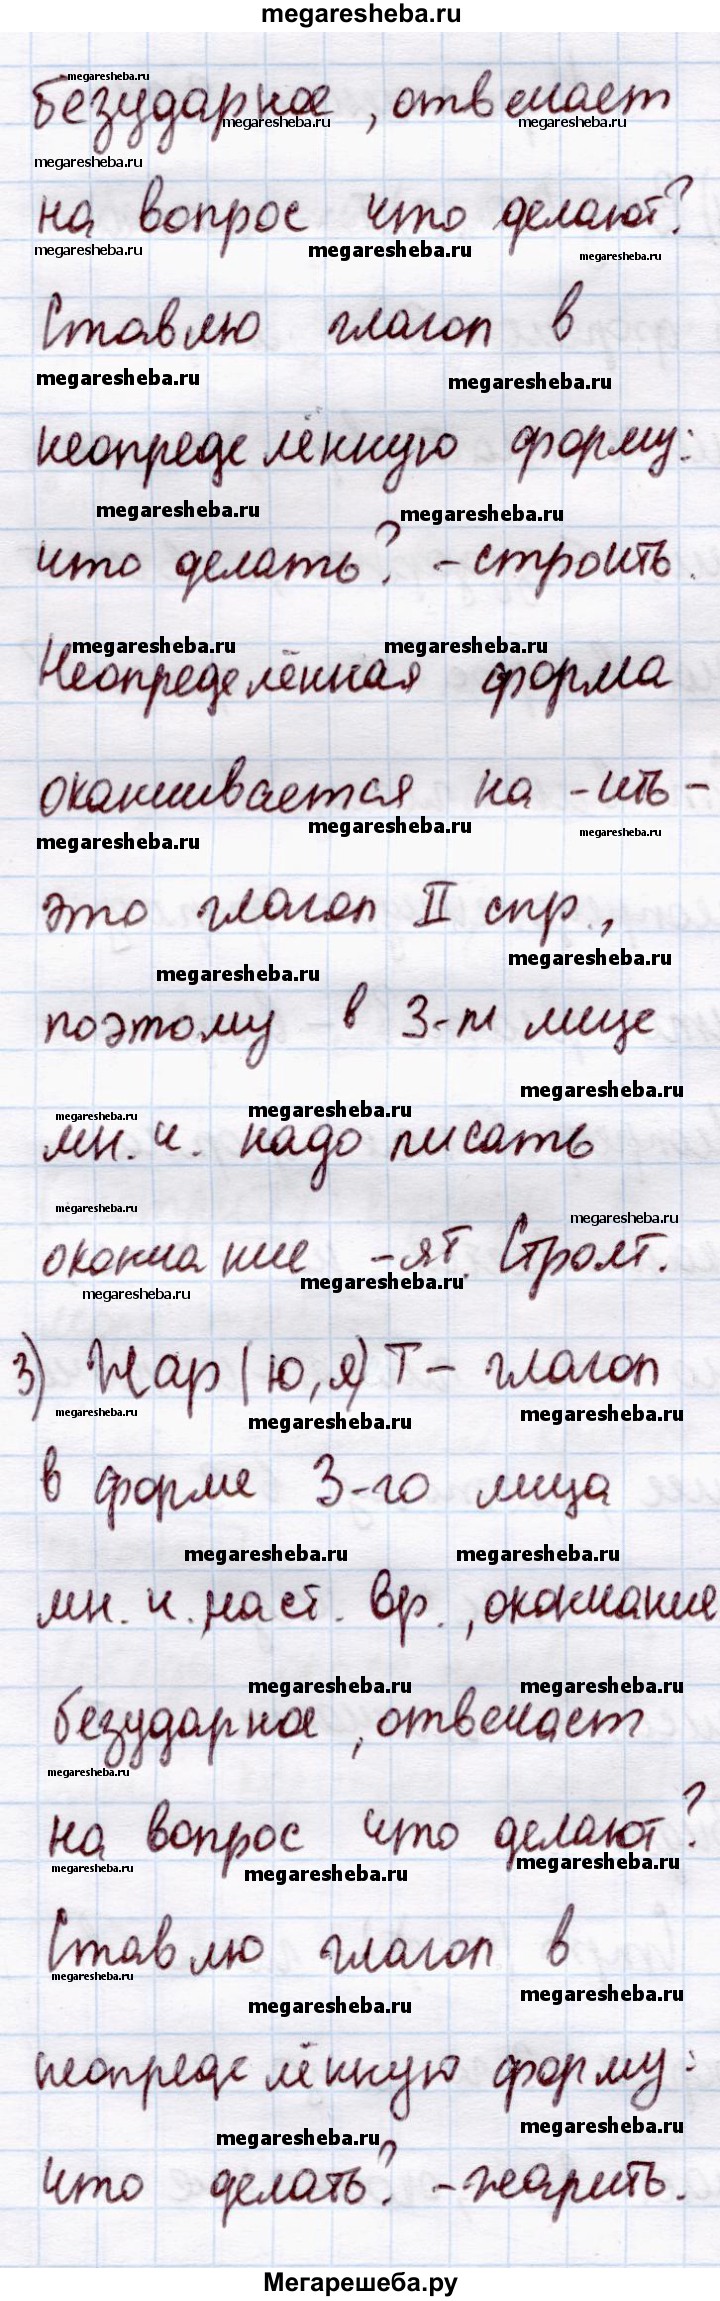 megaresheba.ru
безударное, отвечает
на вопрос что делают?
Ставлю глагол в
неопределённую форму:
что делать? - строить.
Неопределённая форма
оканчивается на -ить -
это глагол II спр.,
поэтому в 3-м лице
мн. ч. надо писать
окончание -ят. Строят.
3) Жар(ю,я)т - глагол
в форме 3-го лица
мн. ч. наст. вр., окончание
безударное, отвечает
на вопрос что делают?
Ставлю глагол в
неопределённую форму:
что делать? - жарить.
Мегарешеба.ру